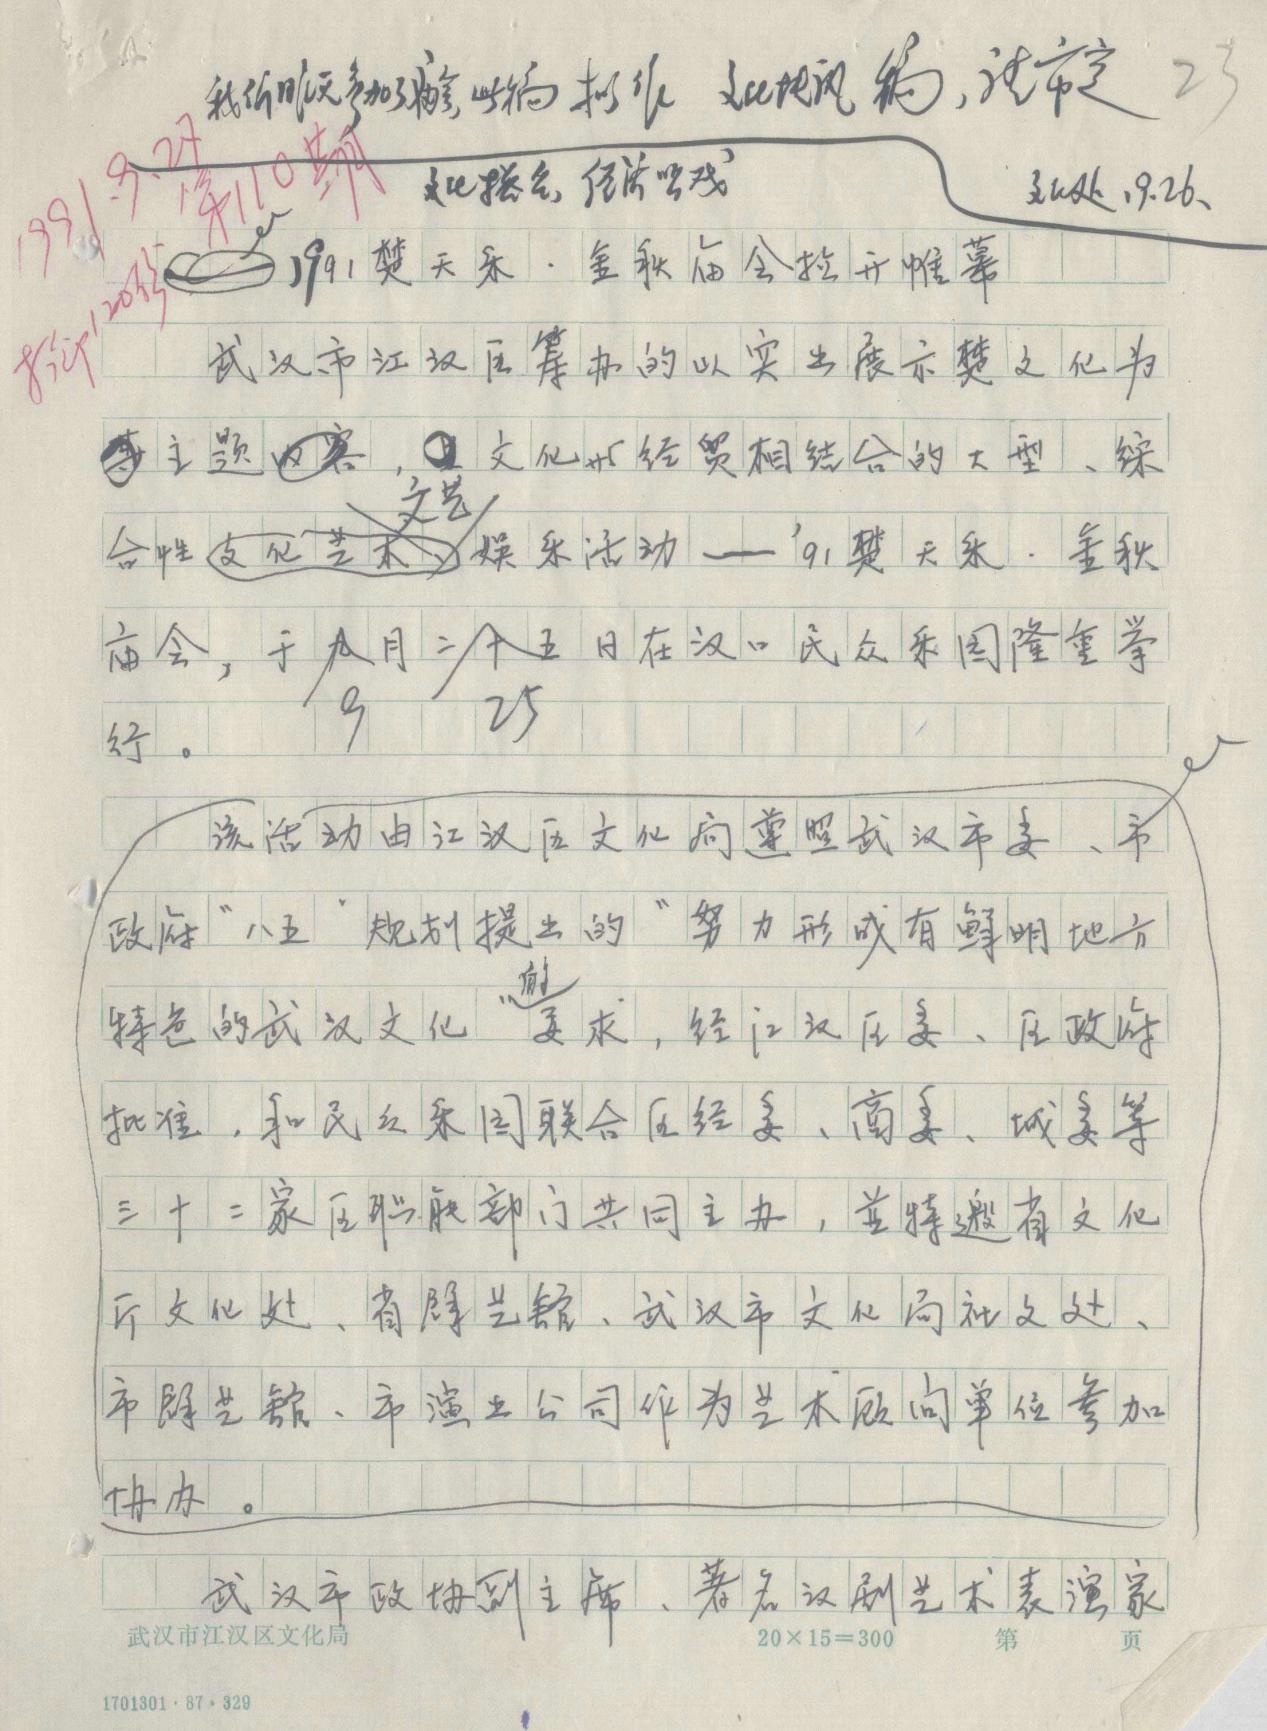 我们昨天参加了庙会,此稿拟作 文化快讯 稿,请审定 23
1991.9.27
第110期
打印120份
文化搭台,经济唱戏
文化处,9.26、
1991楚天乐·金秋庙会拉开帷幕
武汉市江汉区筹办的以突出展示楚文化为
主题内容,文化与经贸相结合的大型、综
文艺
合性文化艺术、娱乐活动——'91楚天乐·金秋
庙会,于九月二十五日在汉口民众乐园隆重举
9 25
行。
该活动由江汉区文化局遵照武汉市委、市
政府“八五”规划提出的“努力形成有鲜明地方
的
特色的武汉文化”要求,经江汉区委、区政府
批准,和民众乐园联合区经委、商委、城委等
三十二家区职能部门共同主办,并特邀省文化
厅文化处、省群艺馆、武汉市文化局社文处、
市群艺馆、市演出公司作为艺术顾问单位参加
协办。
武汉市政协副主席、著名汉剧艺术表演家
武汉市江汉区文化局 20×15=300 第 页
1701301·87·329